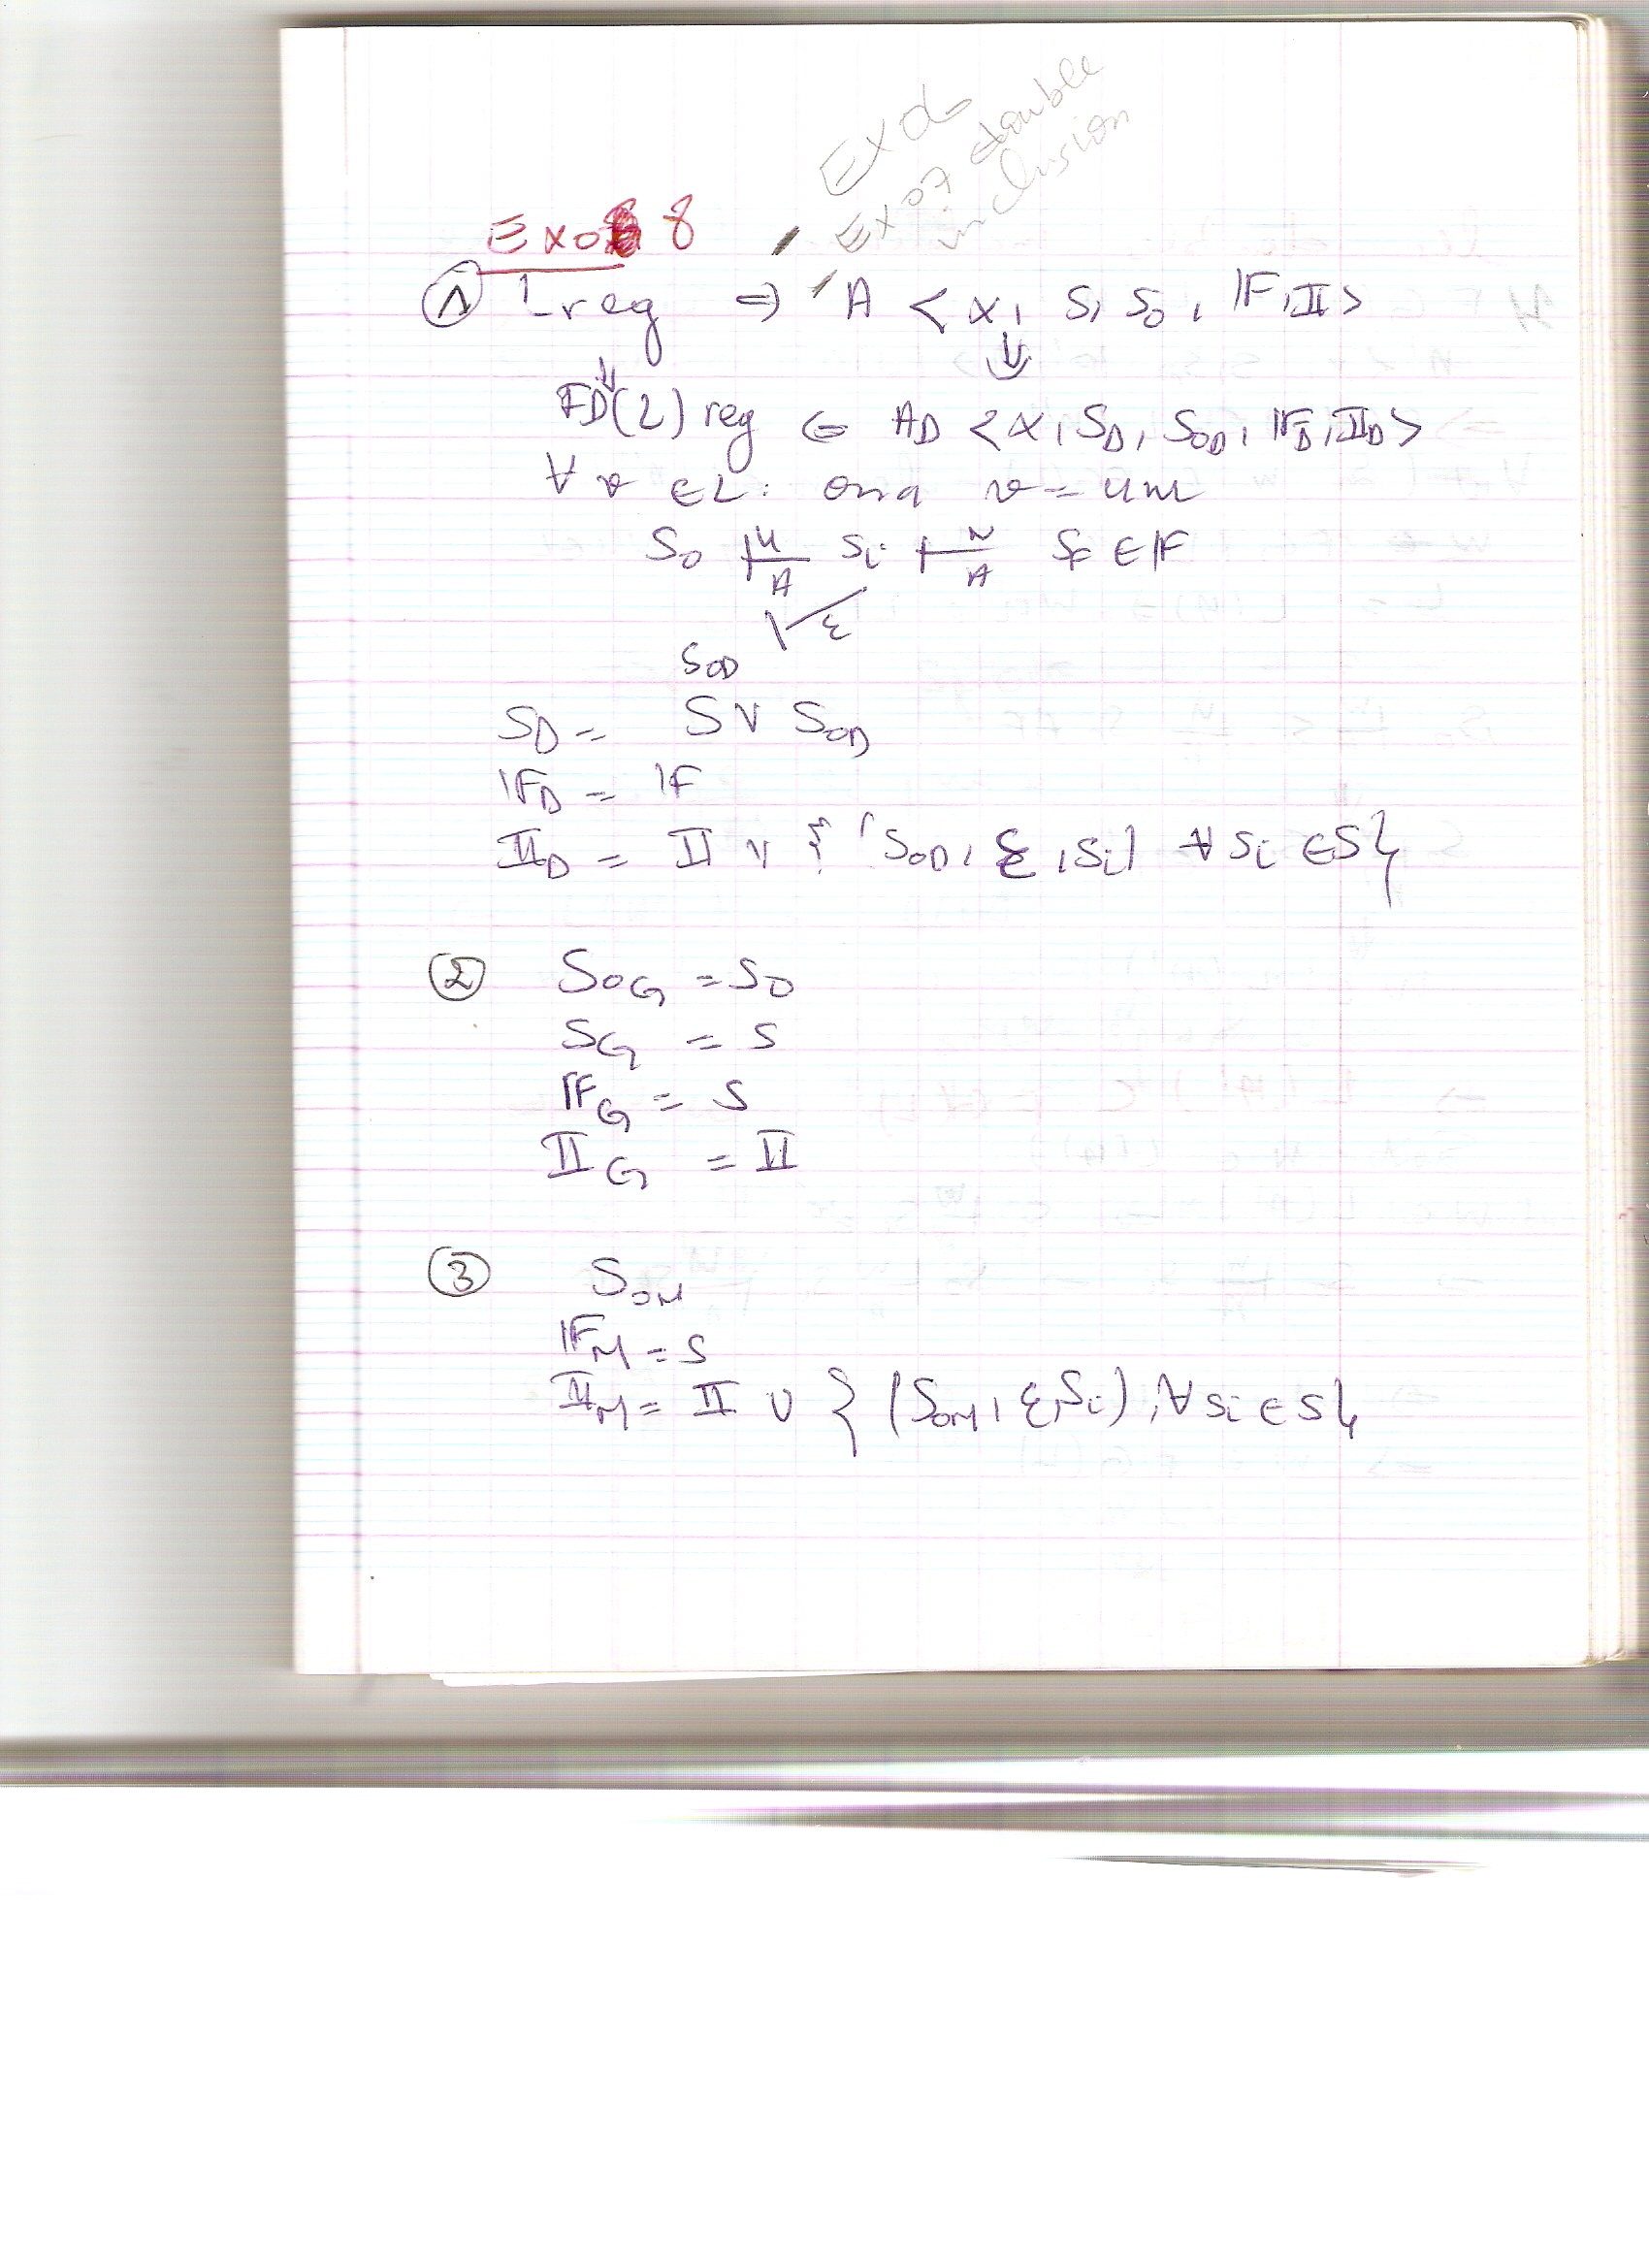 Exo 6
Exo 7 double
inclusion
Exo 8
① L reg ⇒ A < X, S, S0, IF, II >
⇓ ⇓
FD(L) reg ⇐ AD < X, SD, S0D, IFD, IID >
∀ v ∈ L : on a v = uw
S0 |—u/A Si |—w/A Sf ∈ IF
ε
S0D
SD = S ∪ S0D
IFD = IF
IID = II ∪ { (S0D, ε, Si) ∀ Si ∈ S }
② S0G = S0
SG = S
IFG = S
IIG = II
③ S0M
IFM = S
IIM = II ∪ { (S0M, ε, Si), ∀ Si ∈ S }